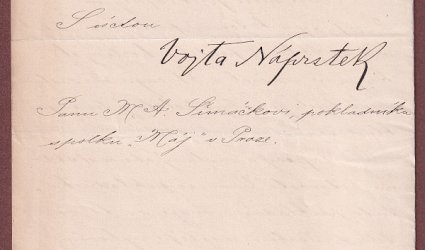 S úctou
Vojta Náprstek
Panu M. A. Šimáčkovi, pokladníku
spolku „Máj" v Praze.